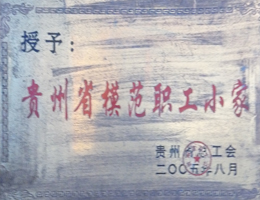 授予：
贵州省模范职工小家
贵州省总工会
二〇〇五年八月